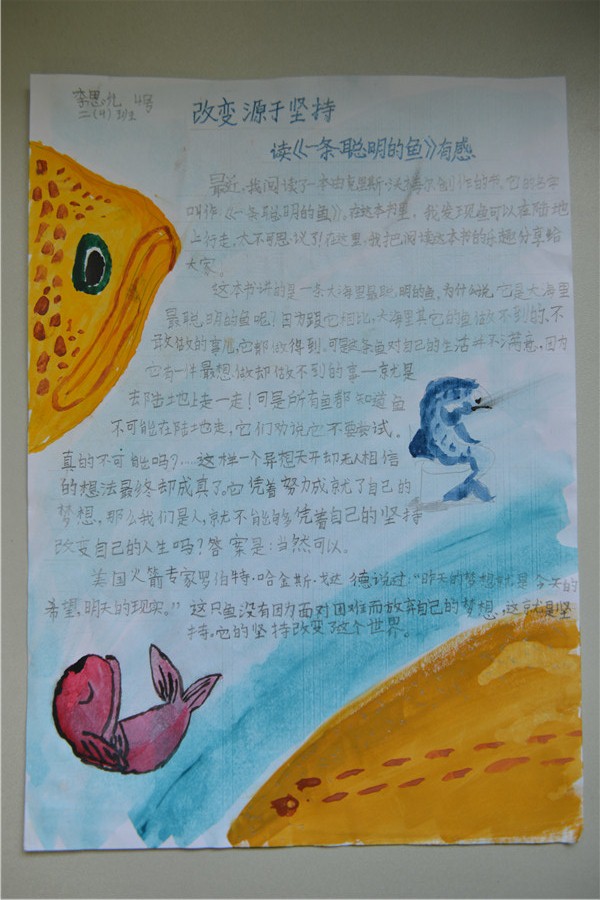 李思 4号
二(4)班
改变源于坚持
读《一条聪明的鱼》有感
最近,我阅读了一本由克里斯·沃 尔创作的书,它的名字
叫作《一条聪明的鱼》。在这本书里,我发现鱼可以在陆地
上行走,太不可思议了!在这里,我把阅读这本书的乐趣分享给
大家。
这本书讲的是一条大海里最聪明的鱼,为什么说它是大海里
最聪明的鱼呢?因为跟它相比,大海里其它的鱼做不到的、不
敢做的事儿,它都做得到。可是这条鱼对自己的生活并不满意,因为
它有一件最想做却做不到的事—就是
去陆地上走一走!可是所有鱼都知道鱼
不可能在陆土也走,它们劝说它不要尝试。
真的不可能吗?……这样一个异想天开却无人相信
的想法最终却成真了。它凭着努力成就了自己的
梦想,那么我们是人,就不能够凭着自己的坚持
改变自己的人生吗?答案是:当然可以。
美国火箭专家罗伯特·哈金斯·戈达德说过:“昨天的梦想就是今天的
希望,明天的现实。”这只鱼没有因为面对困难而放弃自己的梦想,这就是坚
持。它的坚持改变了这个世界。